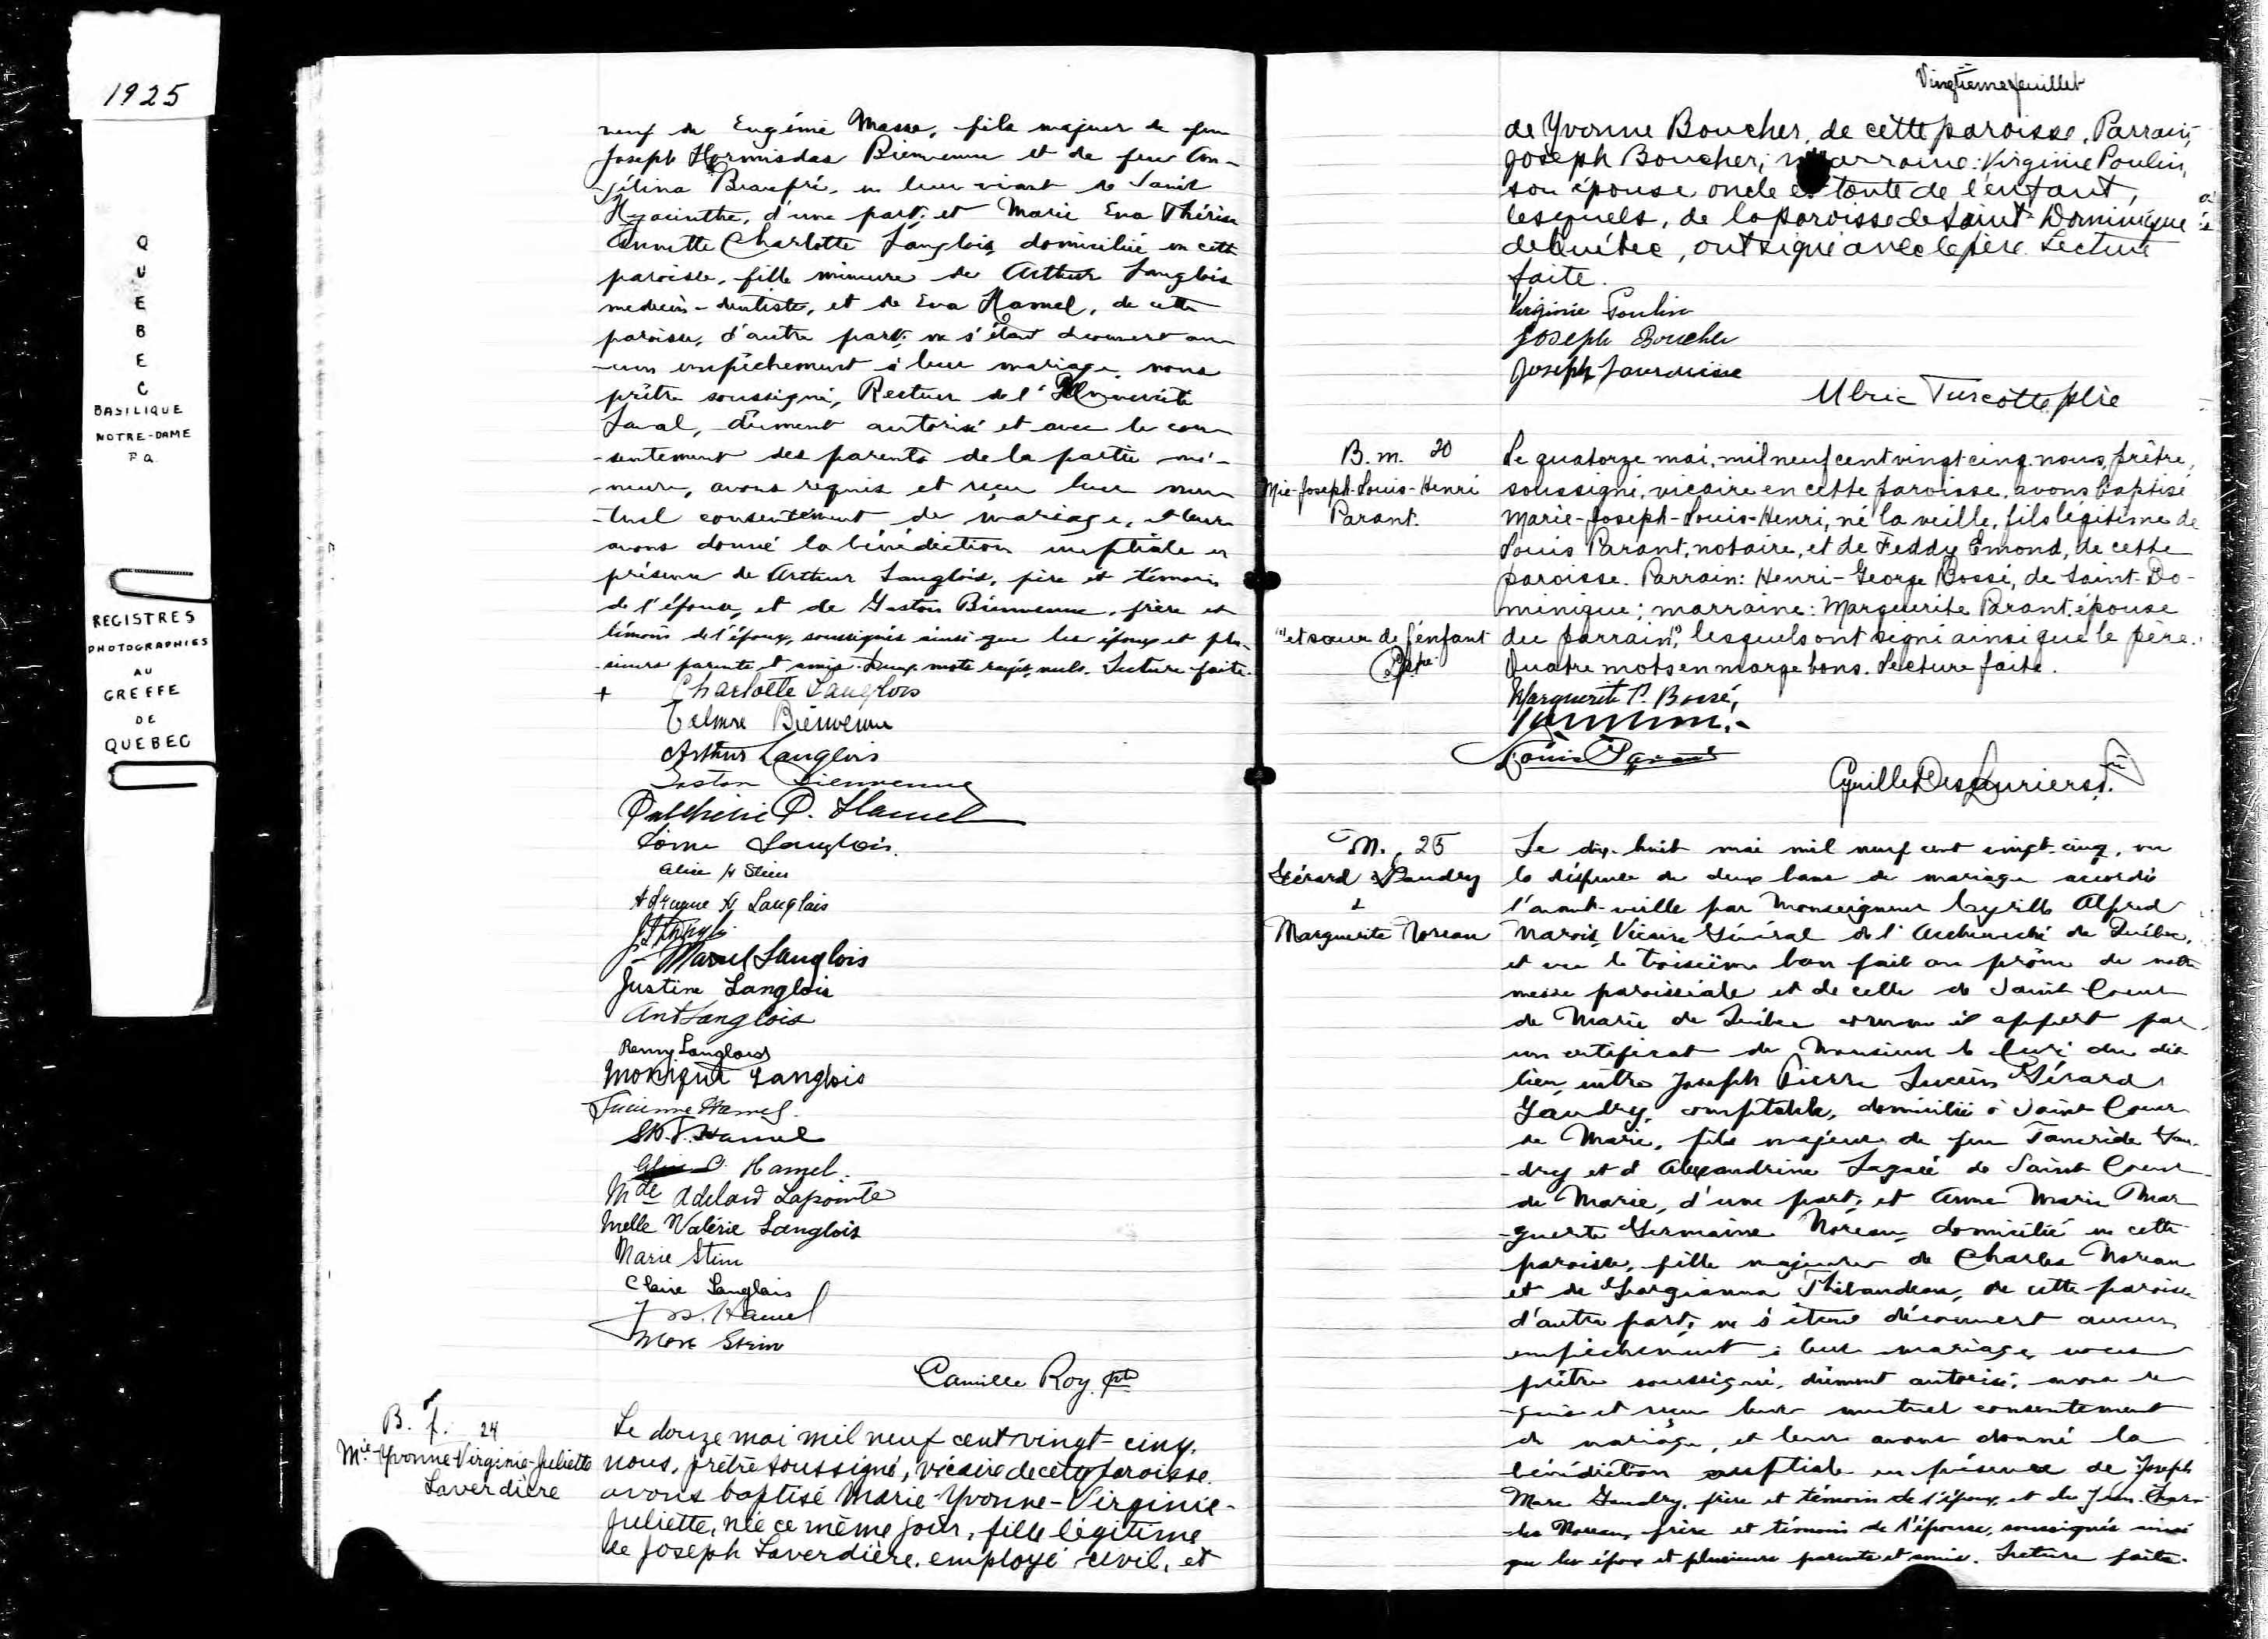 1925
QUEBEC
BASILIQUE
NOTRE-DAME
P.Q.
REGISTRES
PHOTOGRAPHIES
AU
GREFFE
DE
QUEBEC
veuf de Eugénie Masse, fils majeur de feu
Joseph Hormisdas Bienvenue et de feue An-
-gélina Beaupré, en leur vivant de Saint
Hyacinthe, d'une part; et Marie Eva Thérèse
Annette Charlotte Langlois, domiciliée en cette
paroisse, fille mineure de Arthur Langlois
médecin-dentiste, et de Eva Hamel, de cette
paroisse, d'autre part; ne s'étant découvert au-
-cun empêchement à leur mariage, nous
prêtre soussigné, Recteur de l'Université
Laval, dûment autorisé et avec le con-
-sentement des parents de la partie mi-
-neure, avons requis et reçu leur mu-
-tuel consentement de mariage, et leur
avons donné la bénédiction nuptiale en
présence de Arthur Langlois, père et témoin
de l'épouse, et de Gaston Bienvenue, frère et
témoin de l'époux, soussignés ainsi que les époux et plu-
-sieurs parents et amis. Deux mots rayés nuls. Lecture faite.
+ Charlotte Langlois
Bienvenue
Arthur Langlois
Gaston Bienvenue
Hamel
Lorne Langlois
Alice H Stein
H Langlais
Marcel Langlois
Justine Langlois
Ant Langlois
Remy Langlois
Monique Langlois
Lucienne Hamel
Hamel
Hamel.
Mde Adelard Lapointe
Melle Valérie Langlois
Marie Stein
Claire Langlais
Hamel
Marc Stein
Camille Roy ptre
B. f. 24
Mie-Yvonne-Virginie-Juliette
Laverdière
Le douze mai mil neuf cent vingt-cinq.
nous, prêtre soussigné, vicaire de cette paroisse.
avons baptisé Marie-Yvonne-Virginie-
Juliette, née ce même jour, fille légitime
de Joseph Laverdière, employé civil, et
Vingtième feuillet
de Yvonne Boucher, de cette paroisse. Parrain,
Joseph Boucher; marraine: Virginie Poulin,
son épouse oncle et tante de l'enfant,
lesquels, de la paroisse de Saint-Dominique
de Québec, ont signé avec le père. Lecture
faite.
Virginie Poulin
Joseph Boucher
Joseph Laverdière
Ulric Turcotte ptre
B. m. 20
Mie-Joseph-Louis-Henri
Parant.
Le quatorze mai, mil neuf cent vingt cinq nous, prêtre,
soussigné, vicaire en cette paroisse, avons baptisé
Marie-Joseph-Louis-Henri, né la veille, fils légitime de
Louis Parant, notaire, et de Feddy Emond, de cette
paroisse. Parrain: Henri-George Bossé, de Saint-Do-
minique; marraine: Marguerite Parant épouse
"et sœur de l'enfant
du parrain", lesquels ont signé ainsi que le père.
Quatre mots en marge bons. Lecture faite.
Marguerite P. Bossé,
Louis Parant
Cyrille DesLauriers
M. 25
Gérard Gaudry
&
Marguerite Noreau
Le dix-huit mai mil neuf cent vingt-cinq, vu
la dispense de deux bans de mariage accordée
l'avant-veille par Monseigneur Cyrille Alfred
Marois, Vicaire Général de l'Archevêché de Québec,
et vu le troisième ban fait au prône de notre
messe paroissiale et de celle de Saint Coeur
de Marie de Québec comme il appert par
un certificat de Monsieur le Curé du dit
lieu, entre Joseph Pierre Lucien Gérard
Gaudry, comptable, domicilié à Saint Coeur
de Marie, fils majeur de feu Tancrède Gau-
-dry et d'Alexandrine Lagacé de Saint Coeur
de Marie, d'une part; et Anne Marie Mar
-guerite Germaine Noreau, domiciliée en cette
paroisse, fille majeure de Charles Noreau
et de Georgianna Thibaudeau, de cette paroisse
d'autre part; ne s'étant découvert aucun
empêchement à leur mariage, nous
prêtre soussigné, dûment autorisé, avons re
-quis et reçu leur mutuel consentement
de mariage, et leur avons donné la
bénédiction nuptiale en présence de Joseph
Marc Gaudry, frère et témoin de l'époux, et de Jean-Char-
-les Noreau, frère et témoin de l'épouse, soussignés ainsi
que les époux et plusieurs parents et amis. Lecture faite.